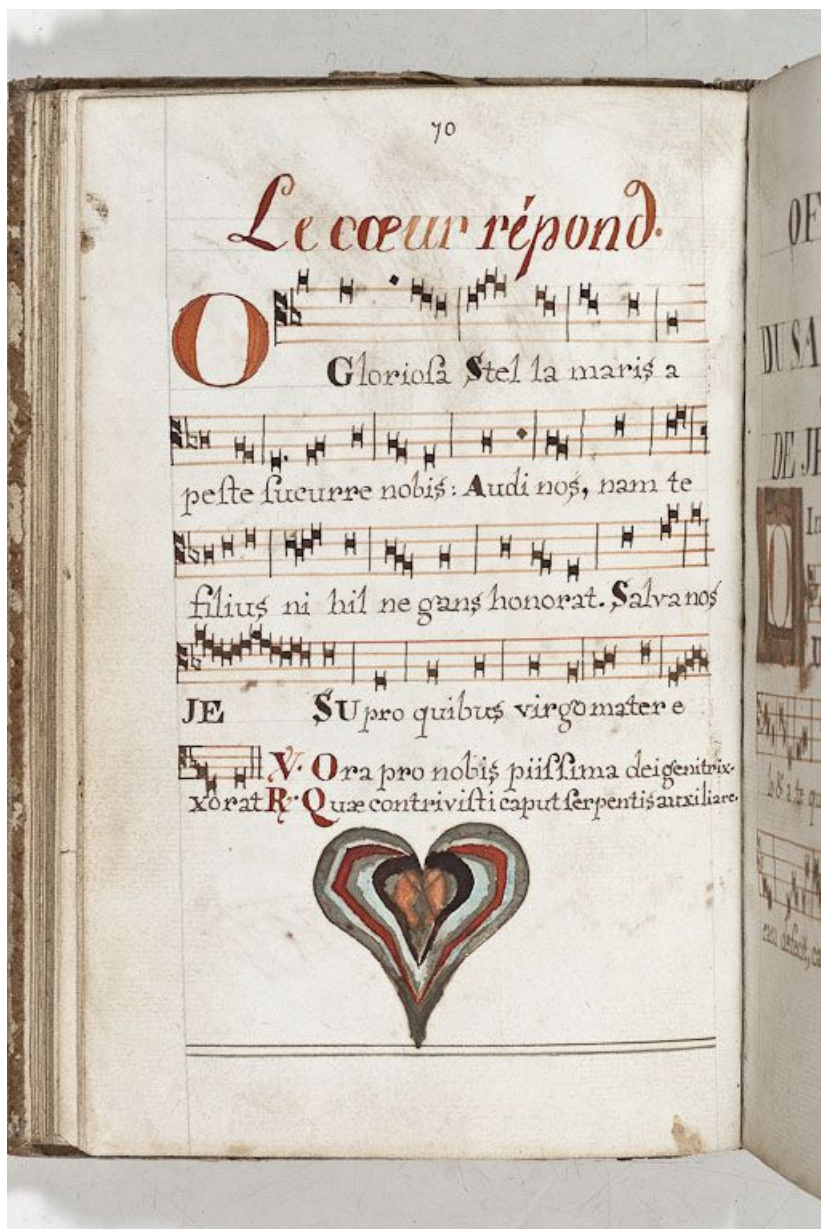 70
Le cœur répond.
O Glorioſa Stel la maris a
peſte ſucurre nobis: Audi nos, nam te
filius ni hil ne gans honorat. Salva nos
JE SU pro quibus virgo mater e
℣. Ora pro nobis piiſſima dei genitrix.
xorat ℟. Quæ contriviſti caput ſerpentis auxiliare.
OF
DU SA
DE JE